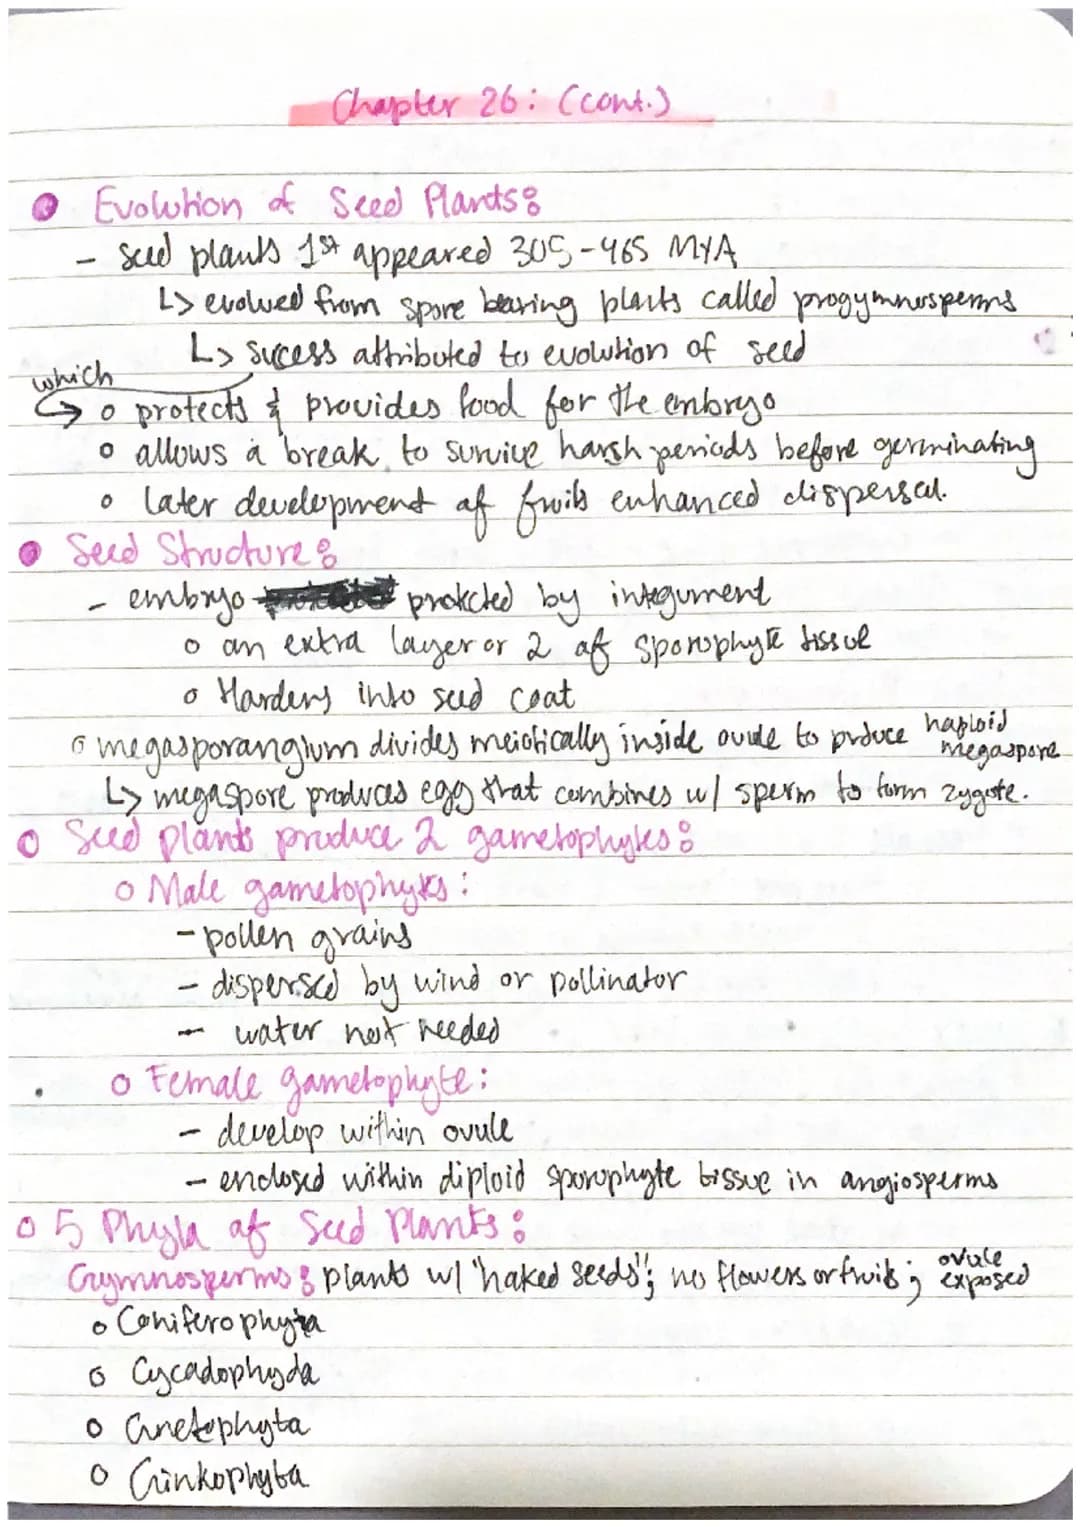 Chapter 26: (cont.)
Evolution of Seed Plants:
- seed plants 1st appeared 305-465 MYA
↳ evolved from spore bearing plants called progymnosperms
↳ sucess attributed to evolution of seed
which
→ o protects & provides food for the embryo
o allows a break to survive harsh periods before germinating
o later development of fruits enhanced dispersal.
Seed Structure:
- embryo protected by integument
o an extra layer or 2 of sporophyte tissue
o Hardens into seed coat
o megasporangium divides meiotically inside ovule to produce haploid megaspore
↳ megaspore produces egg that combines w/ sperm to form zygote.
o Seed plants produce 2 gametophytes:
o Male gametophytes:
- pollen grains
- dispersed by wind or pollinator
- water not needed
o Female gametophyte:
- develop within ovule
- enclosed within diploid sporophyte tissue in angiosperms
o 5 Phyla of Seed Plants:
Gymnosperms: plants w/ "naked seeds"; no flowers or fruits; ovule exposed
o Coniferophyta
o Cycadophyda
o Gnetophyta
o Ginkophyta